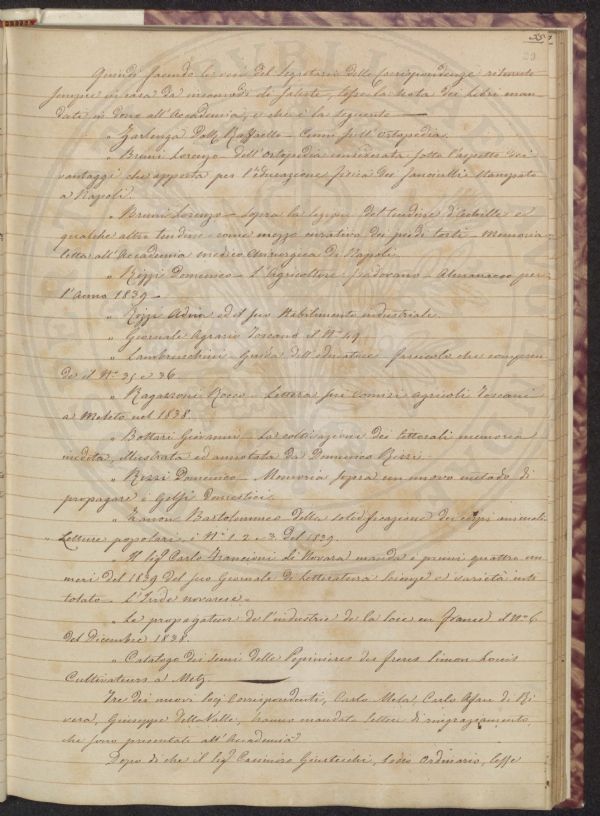 351
29
Quindi facendo le veci del Segretario delle Corrispondenze ritenuto
sempre in casa da incomodi di salute, lesse la Nota dei libri man-
dati in dono all'Accademia, e che è la seguente
" Zarlenga Dott. Raffaello - Cenni sull'Ortopedia.
" Bruni Lorenzo - dell'Ortopedia considerata sotto l'aspetto dei
vantaggi che apporta per l'educazione fisica dei fanciulli stampato
a Napoli.
" Bruni Lorenzo - Sopra la sezione del tendine d'Achille e
qualche altro tendine come mezzo curativo dei piedi torti - Memoria
letta all'Accademia medico Chirurgica di Napoli.
" Rizzi Domenico - L'Agricoltore Padovano - Almanacco per
l'Anno 1839 -
" Rozzi ed il suo Stabilimento industriale.
" Giornale Agrario Toscano il N.º 49
" Lambruschini - Guida dell'educatore fascicolo che compren-
de il N.º 35 e 36
" Ragazzoni Rocco - Lettera sui Comizi agricoli Toscani
a Meleto nel 1838.
" Bottari Giovanni - La coltivazione dei litorali memoria
inedita, illustrata ed annotata da Domenico Rizzi
" Rizzi Domenico - Memoria sopra un nuovo metodo di
propagare i Gelsi Domestici.
" Zanon Bartolommeo della solidificazione dei corpi animali
" Letture popolari i N.i 1. 2 e 3. del 1839.
" Il Sig.r Carlo di Novara manda i primi quattro nu-
meri del 1839 del suo Giornale di Letteratura Scienze e varietà inti-
tolato - L'Iride novarese -
" Le propagateur de l'industrie de la soie en France il N.º 6
del Dicembre 1838.
" Catalogo dei semi delle Pepinieres des freres Simon Louis
Cultivateurs a Metz
Tre dei nuovi Socj Corrispondenti, Carlo Mele, Carlo Afan de Ri-
vera, Giuseppe della Valle, hanno mandato lettere di ringraziamento,
che sono presentate all'Accademia
Dopo di che il Sig.r Casimiro Giusteschi, Socio Ordinario, lesse